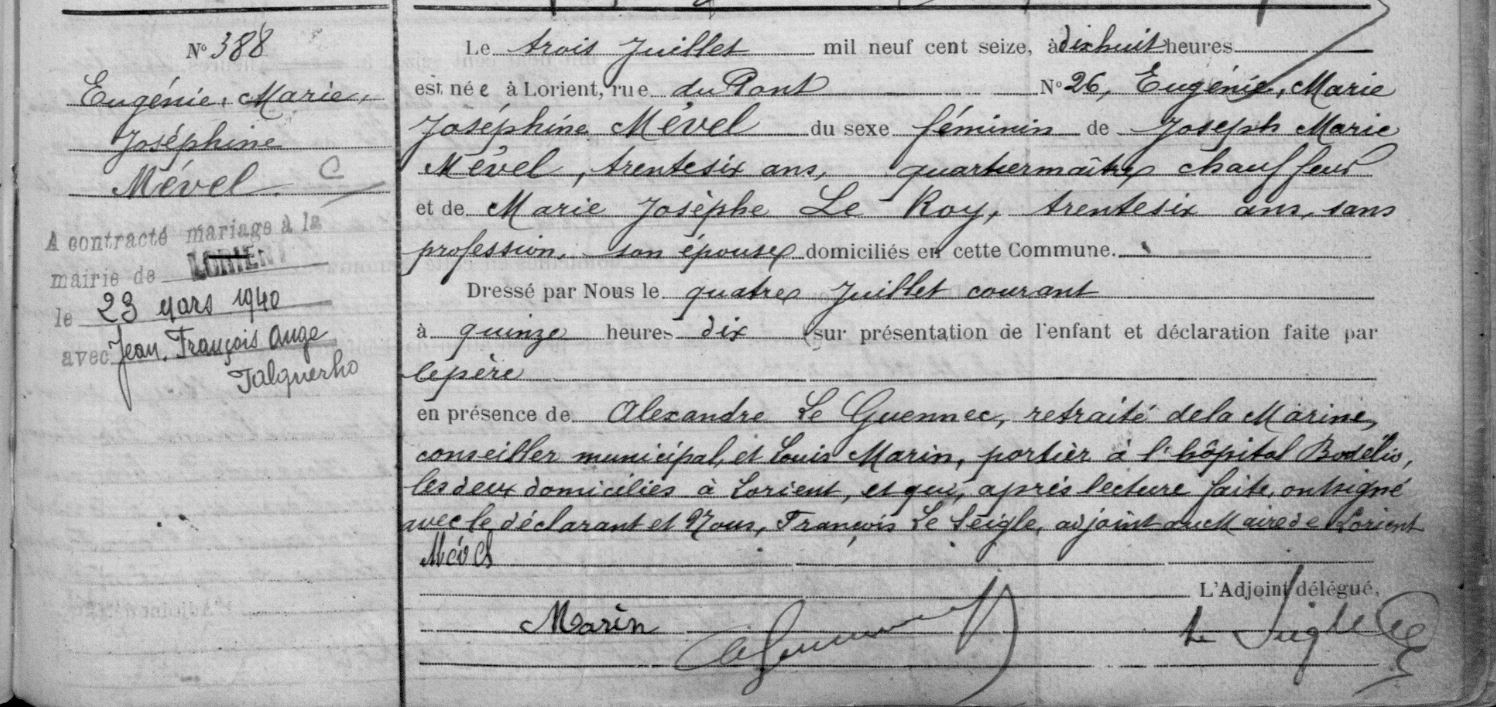 N° 388
Eugénie, Marie,
Joséphine
Mével. C
A contracté mariage à la
mairie de LORIENT
le 23 mars 1940
avec Jean, François Ange
Talguerho
Le trois Juillet mil neuf cent seize, à dixhuit heures
est née à Lorient, rue du Pont N° 26, Eugénie, Marie
Joséphine Mével du sexe féminin de Joseph Marie
Mével, trentesix ans, quartiermaître chauffeur
et de Marie Josèphe Le Roy, trentesix ans, sans
profession, son épouse domiciliés en cette Commune.
Dressé par Nous le quatre Juillet courant
à quinze heures dix sur présentation de l'enfant et déclaration faite par
lepère
en présence de Alexandre Le Guennec, retraité dela Marine,
conseiller municipal, et Louis Marin, portier à l'hôpital Bodélio,
les deux domiciliés à Lorient, et qui, après lecture faite, ont signé
avec le déclarant et Nous, François Le Seigle, adjoint au Maire de Lorient
Mével
L'Adjoint délégué,
Marin Le Seigle